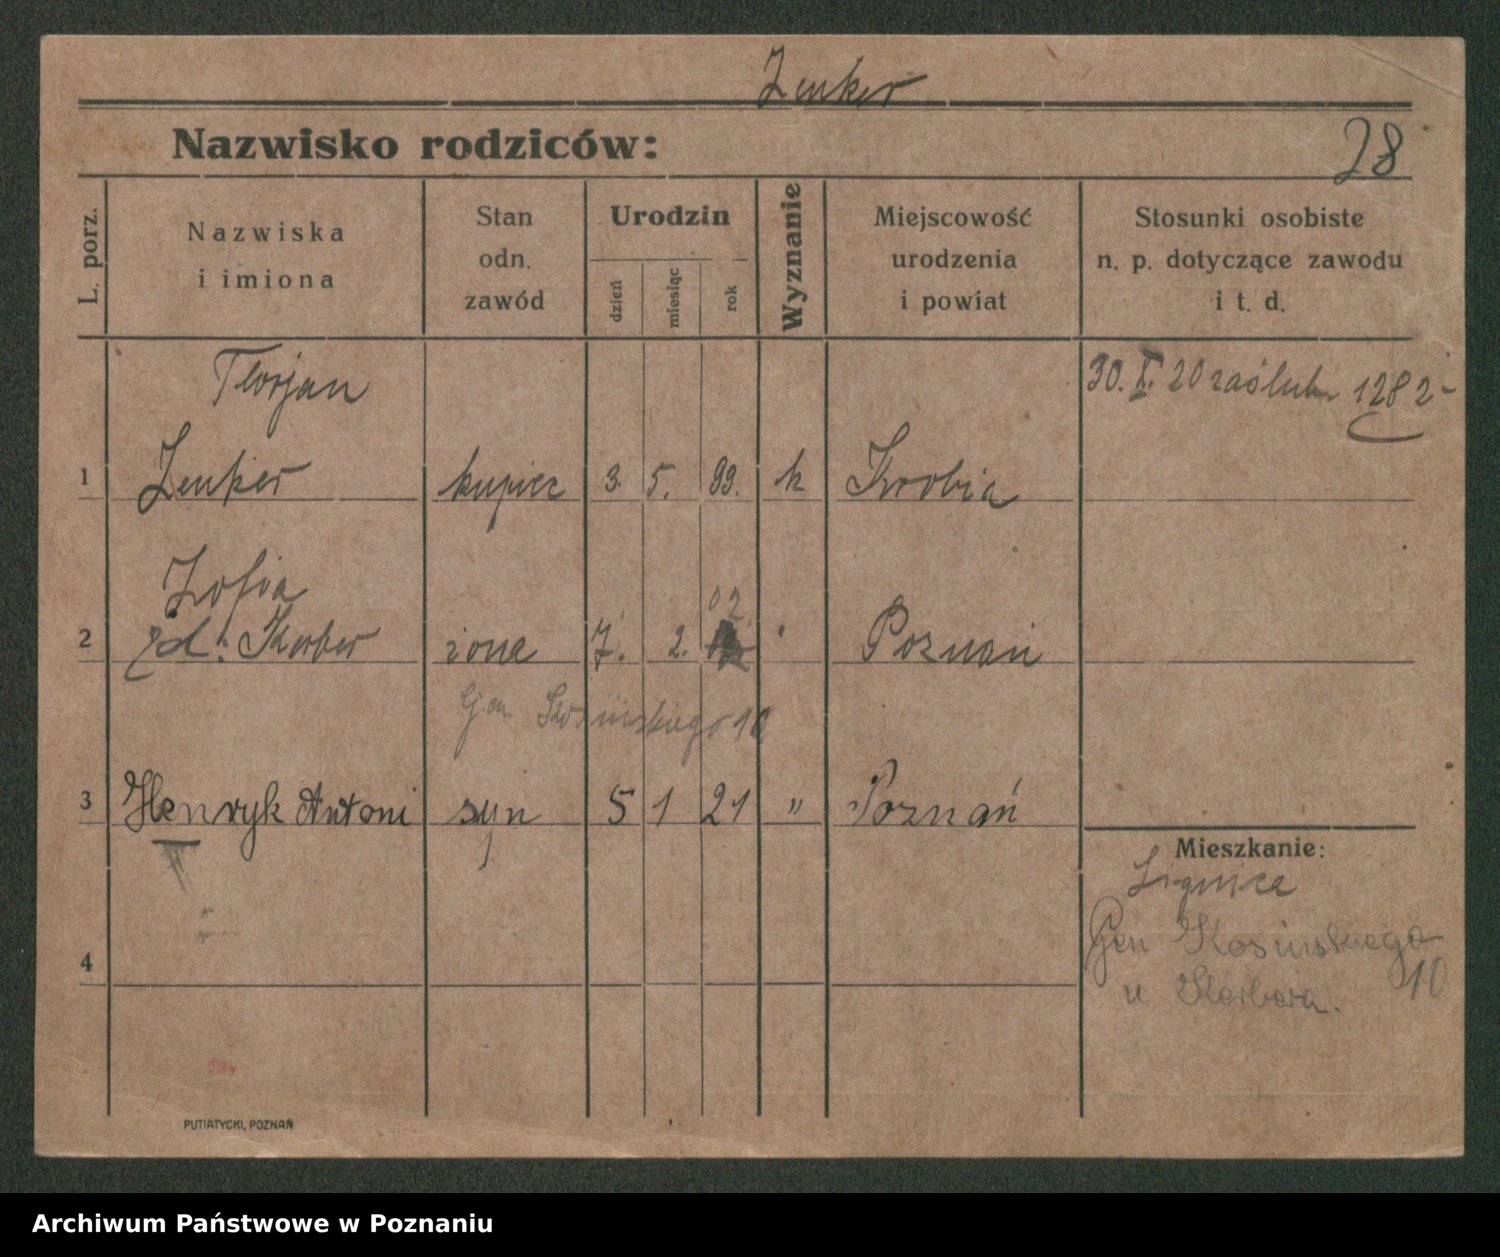 Zenker
Nazwisko rodziców:
28
L. porz.
Nazwiska
i imiona
Stan
odn.
zawód
Urodzin
dzień
miesiąc
rok
Wyznanie
Miejscowość
urodzenia
i powiat
Stosunki osobiste
n. p. dotyczące zawodu
i t. d.
Florjan
30. X. 20 zaślub. 1282-
1 Zenker kupiec 3. 5. 99. k Krobia
Zofia
02
2 zd. Korber żona 7. 2. Poznań
Gen. Kosinskiego 10
3 Henryk Antoni syn 5 1 21 " Poznań
Mieszkanie:
Lignica
Gen Kosinskiego
10
u Korbera.
4
PUTIATYCKI, POZNAŃ
Archiwum Państwowe w Poznaniu